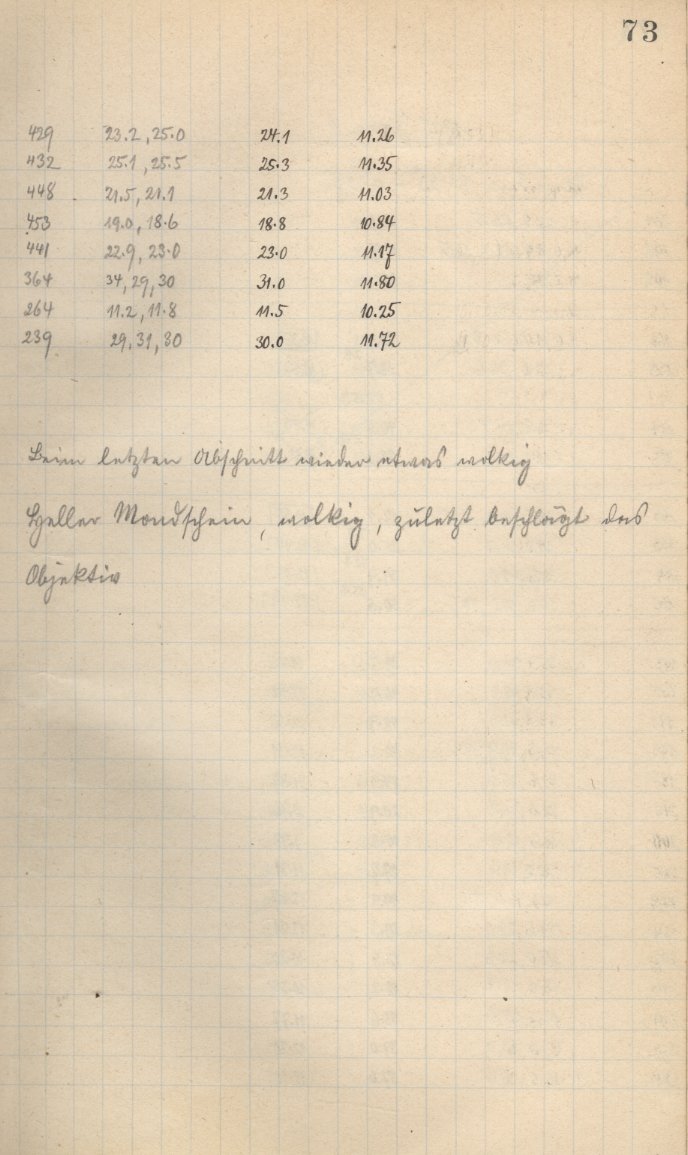 73
429 23.2, 25.0 24.1 11.26
432 25.1, 25.5 25.3 11.35
448 21.5, 21.1 21.3 11.03
453 19.0, 18.6 18.8 10.84
441 22.9, 23.0 23.0 11.17
364 34, 29, 30 31.0 11.80
264 11.2, 11.8 11.5 10.25
239 29, 31, 30 30.0 11.72
Beim letzten Abschnitt wieder etwas wolkig
Heller Mondschein, wolkig, zuletzt beschlägt das
Objektiv